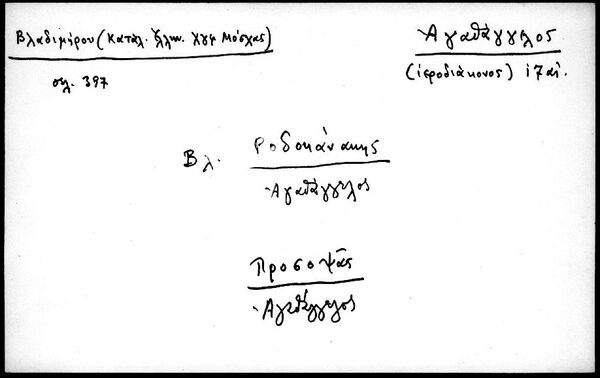 Βλαδιμήρου (Κατάλ. Ἑλλην. Χγφ Μόσχας)
Ἀγαθάγγελος
(ἱεροδιάκονος) 17 αἰ.
σελ. 397
Βλ. Ροδοκανάκης
Ἀγαθάγγελος
Προσοψᾶς
Ἀγαθάγγελος